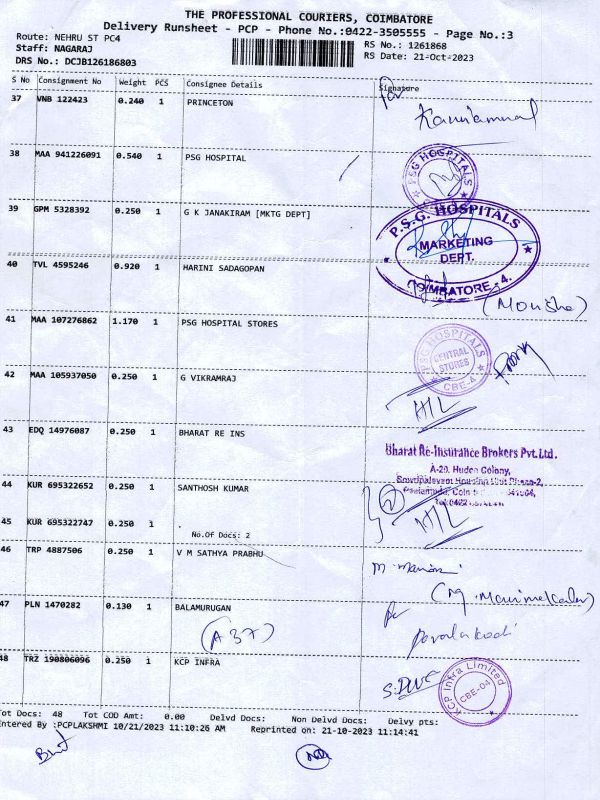 THE PROFESSIONAL COURIERS, COIMBATORE
Delivery Runsheet - PCP - Phone No.:0422-3505555 - Page No.:3
Route: NEHRU ST PC4
RS No.: 1261868
Staff: NAGARAJ
RS Date: 21-Oct-2023
DRS No.: DCJB126186803
S No Consignment No Weight PCS Consignee Details Signature
37 VNB 122423 0.240 1 PRINCETON
38 MAA 941226091 0.540 1 PSG HOSPITAL
PSG HOSPITALS
39 GPM 5328392 0.250 1 G K JANAKIRAM [MKTG DEPT]
P.S.G. HOSPITALS
MARKETING
DEPT.
COIMBATORE - 4.
40 TVL 4595246 0.920 1 HARINI SADAGOPAN
(Monisha)
41 MAA 107276862 1.170 1 PSG HOSPITAL STORES
PSG HOSPITALS
CENTRAL
STORES
CBE-4
42 MAA 105937050 0.250 1 G VIKRAMRAJ
H/L
43 EDQ 14976087 0.250 1 BHARAT RE INS
Bharat Re-Insurance Brokers Pvt. Ltd.
A-20, Hudco Colony,
44 KUR 695322652 0.250 1 SANTHOSH KUMAR
2
H/L
45 KUR 695322747 0.250 1
No.Of Docs: 2
46 TRP 4887506 0.250 1 V M SATHYA PRABHU
47 PLN 1470282 0.130 1 BALAMURUGAN
(A 37)
48 TRZ 190806096 0.250 1 KCP INFRA
KCP Infra Limited
CBE-04
Tot Docs: 48 Tot COD Amt: 0.00 Delvd Docs: Non Delvd Docs: Delvy pts:
Entered By :PCPLAKSHMI 10/21/2023 11:10:26 AM Reprinted on: 21-10-2023 11:14:41